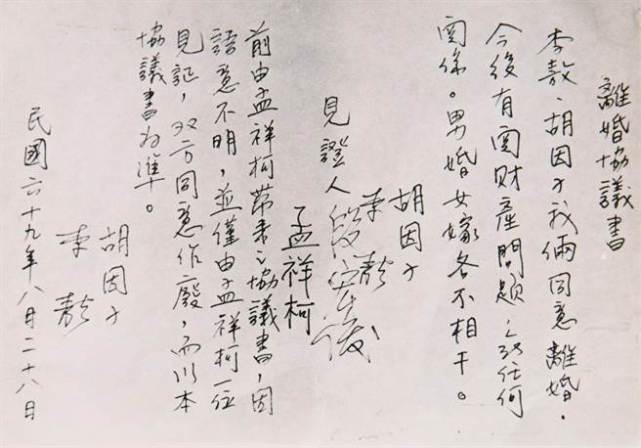 離婚協議書
李敖、胡因子我倆同意離婚.
今後有関財產問題沒任何
関係。男婚女嫁各不相干。
胡因子
李敖
見證人段宏俊
孟祥柯
前由孟祥柯帶來之協議書,因
語意不明,並僅由孟祥柯一位
見証,双方同意作廢,而以本
協議書为準。
胡因子
李敖
民國六十九年八月二十八日